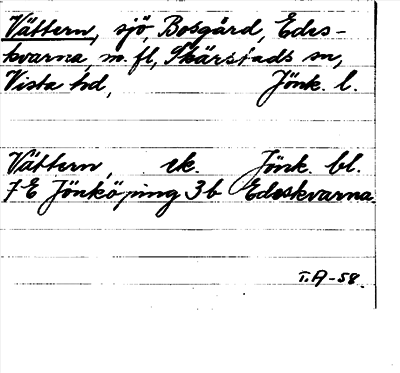 Vättern, sjö, Bosgård, Edes-
kvarna m. fl, Skärstads sn,
Vista hd, Jönk. l.
Vättern, ek. Jönk. bl.
7 E Jönköping 3b Edeskvarna.
T.A-58.